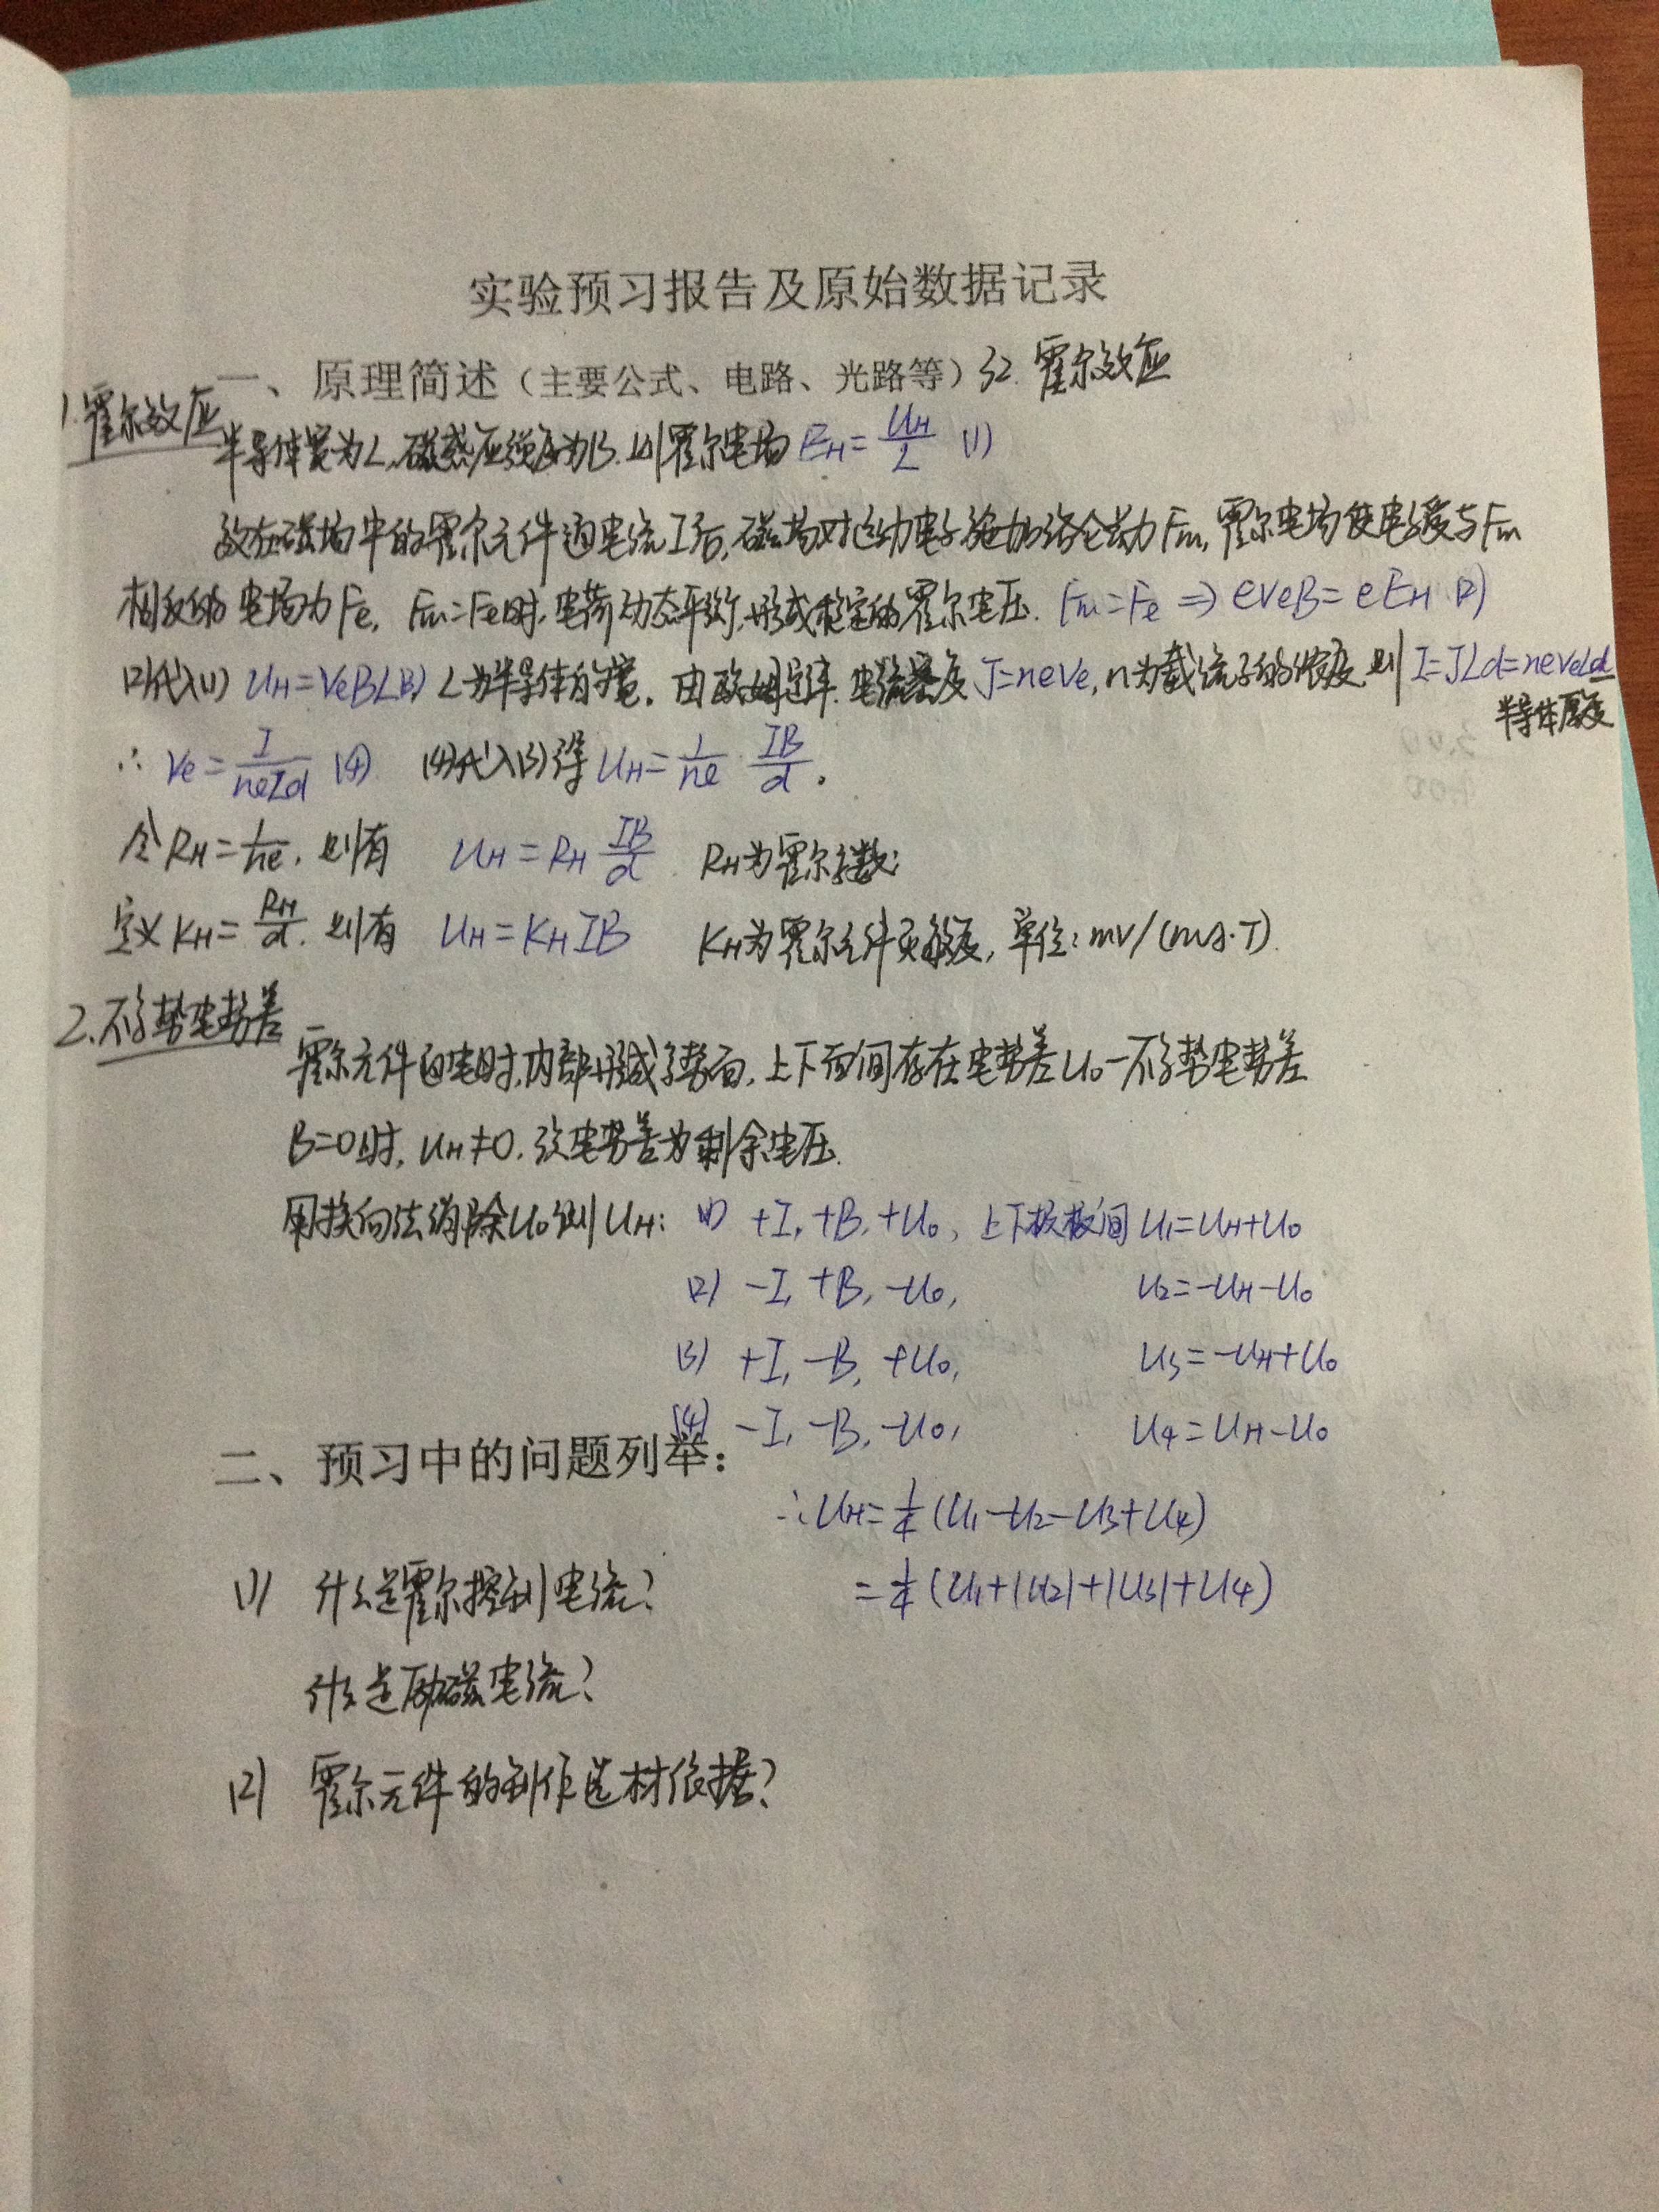 实验预习报告及原始数据记录
一、原理简述（主要公式、电路、光路等）32. 霍尔效应
1.霍尔效应
半导体宽为L,磁感应强度为B.则霍尔电场 EH=UH/L (1)
放在磁场中的霍尔元件通电流I后,磁场对运动电子施加洛仑兹力Fm,霍尔电场使电子受与Fm
相反的电场力Fe. Fm=Fe时,电荷动态平衡,形成稳定的霍尔电压. Fm=Fe ⇒ eveB=eEH (2)
(2)代入(1) UH=VeBL(3) L为半导体的宽. 由欧姆定律.电流密度J=neve,n为载流子的浓度,则I=JLd=neveLd
半导体厚度
∴ Ve=I/neLd (4) (4)代入(3)得 UH=1/ne IB/d.
令RH=1/ne.则有 UH=RH IB/d. RH为霍尔系数;
定义KH=RH/d.则有 UH=KHIB KH为霍尔元件灵敏度,单位:mv/(mA·T).
2.不等势电势差
霍尔元件通电时,内部形成等势面,上下面间存在电势差U0—不等势电势差
B=0时,UH≠0,该电势差为剩余电压.
用换向法消除U0测UH: (1) +I,+B,+U0, 上下极板间U1=UH+U0
(2) -I,+B,-U0, U2=-UH-U0
(3) +I,-B,+U0, U3=-UH+U0
(4) -I,-B,-U0, U4=UH-U0
二、预习中的问题列举：
∴UH=1/4(U1-U2-U3+U4)
=1/4(U1+|U2|+|U3|+U4)
(1) 什么是霍尔控制电流?
什么是励磁电流?
(2) 霍尔元件的制作选材依据?